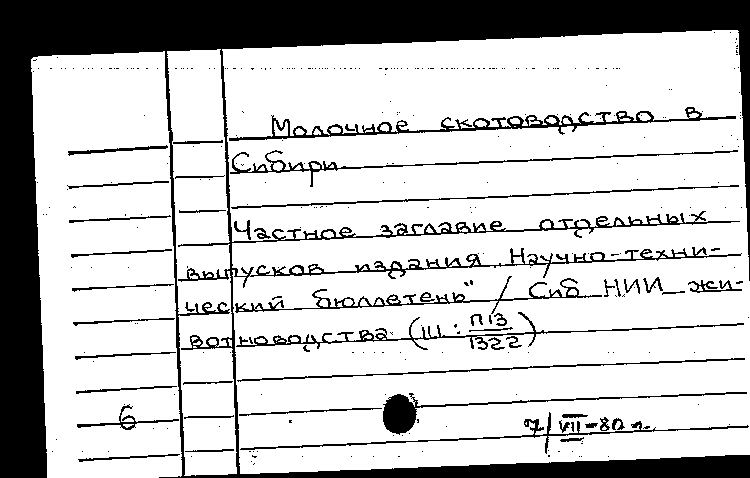 Молочное скотоводство в
Сибири.
Частное заглавие отдельных
выпусков издания „Научно-техни-
ческий бюллетень" / Сиб НИИ жи-
вотноводства (Ш : П13
1322)
6
7/VII-80 г.